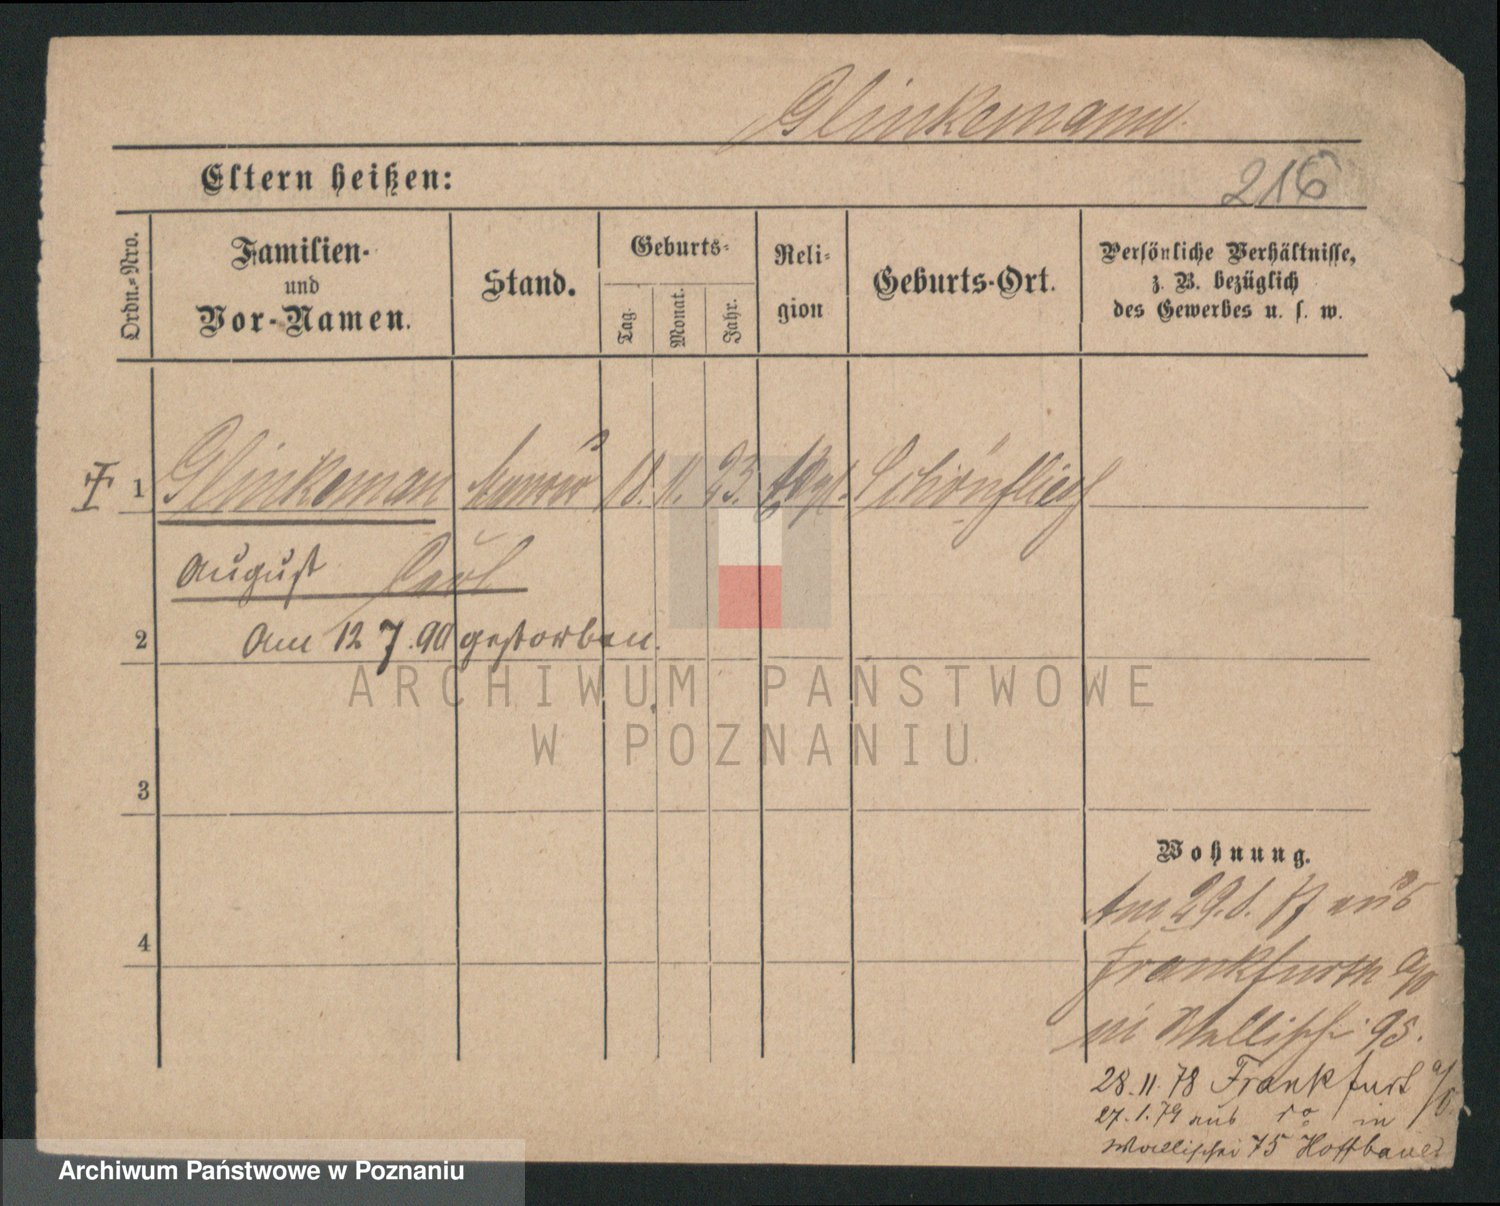 Glinkemann.
Eltern heißen:
216
Ordn.-Nro.
Familien-
und
Vor-Namen.
Stand.
Geburts-
Tag.
Monat.
Jahr.
Reli-
gion
Geburts-Ort.
Persönliche Verhältnisse,
z. B. bezüglich
des Gewerbes u. s. w.
1 Glinkeman 18. 11. 23. Schönfließ
August Carl
2 Am 12 7. 90 gestorben.
ARCHIWUM PAŃSTWOWE
W POZNANIU
3
Wohnung.
4
Am 29. 8. 77 aus
Frankfurth a/o
in Wallischei 95.
28. 11. 78 Frankfurt a/O
27. 1. 79 aus do in
Wallischei 75 Hoffbauer
Archiwum Państwowe w Poznaniu